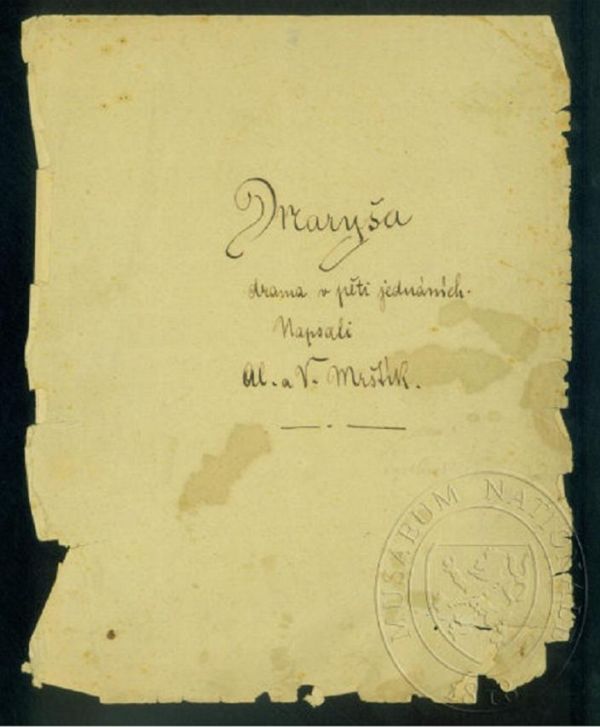 Maryša
drama v pěti jednáních.
Napsali
Al. a V. Mrštík.
MUSAEUM